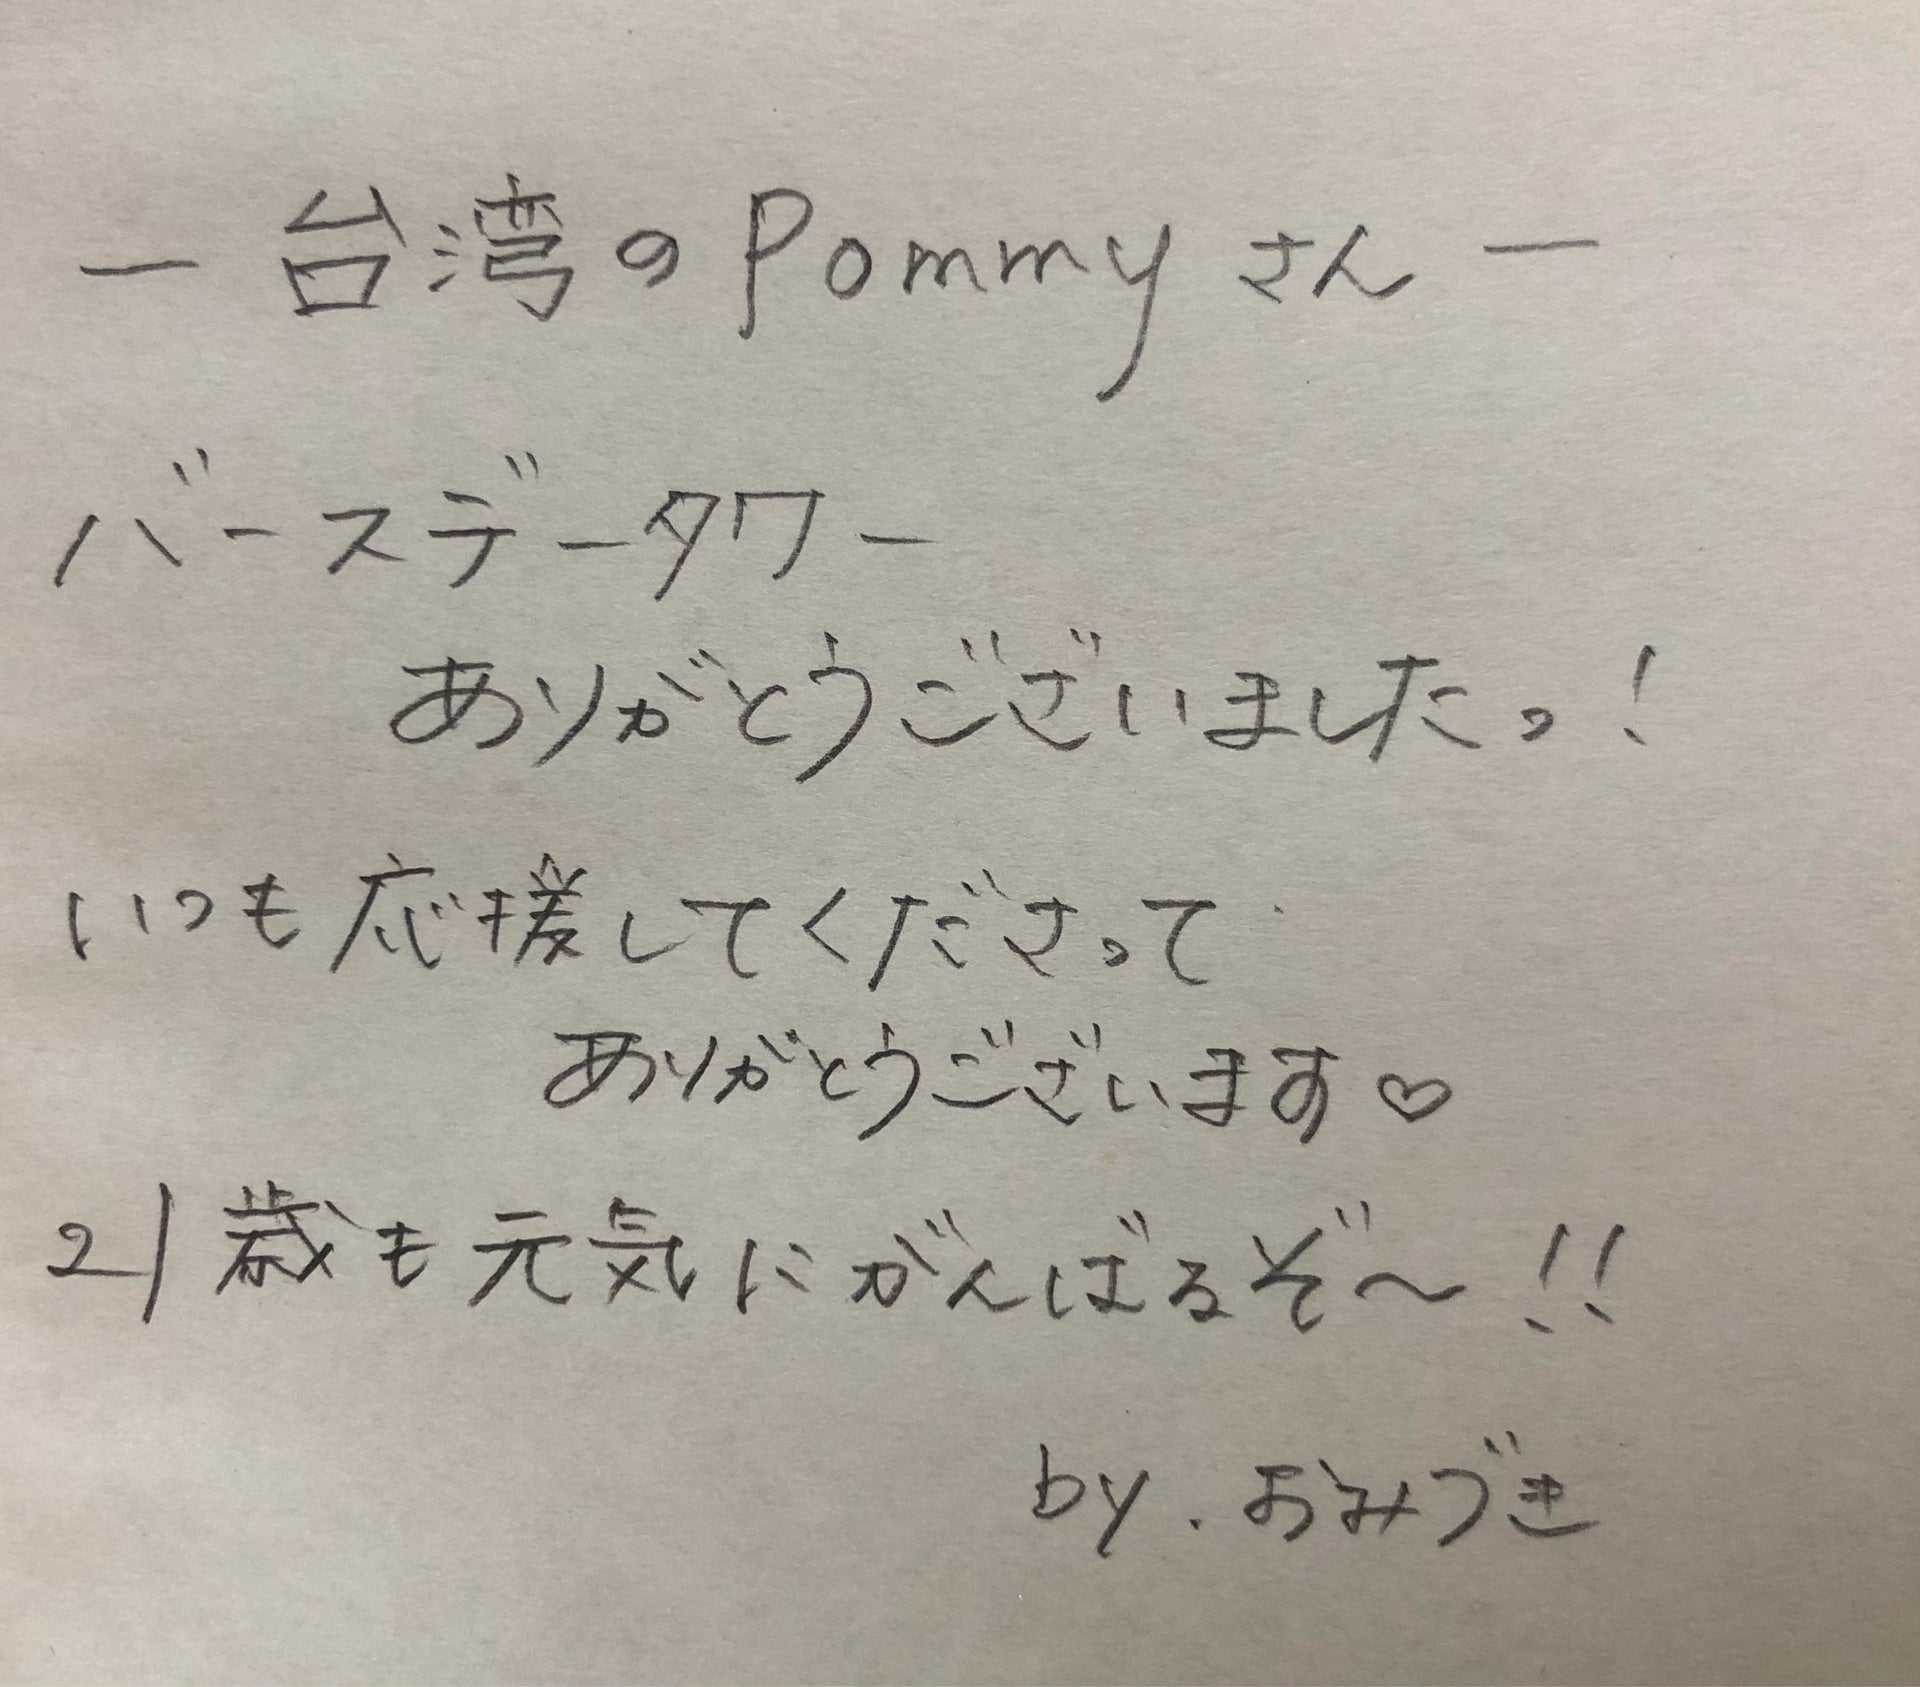 ー台湾のPommyさんー
バースデータワー
ありがとうございましたっ!
いつも応援してくださって
ありがとうございます♡
21歳も元気にがんばるぞ〜!!
by.おみづき